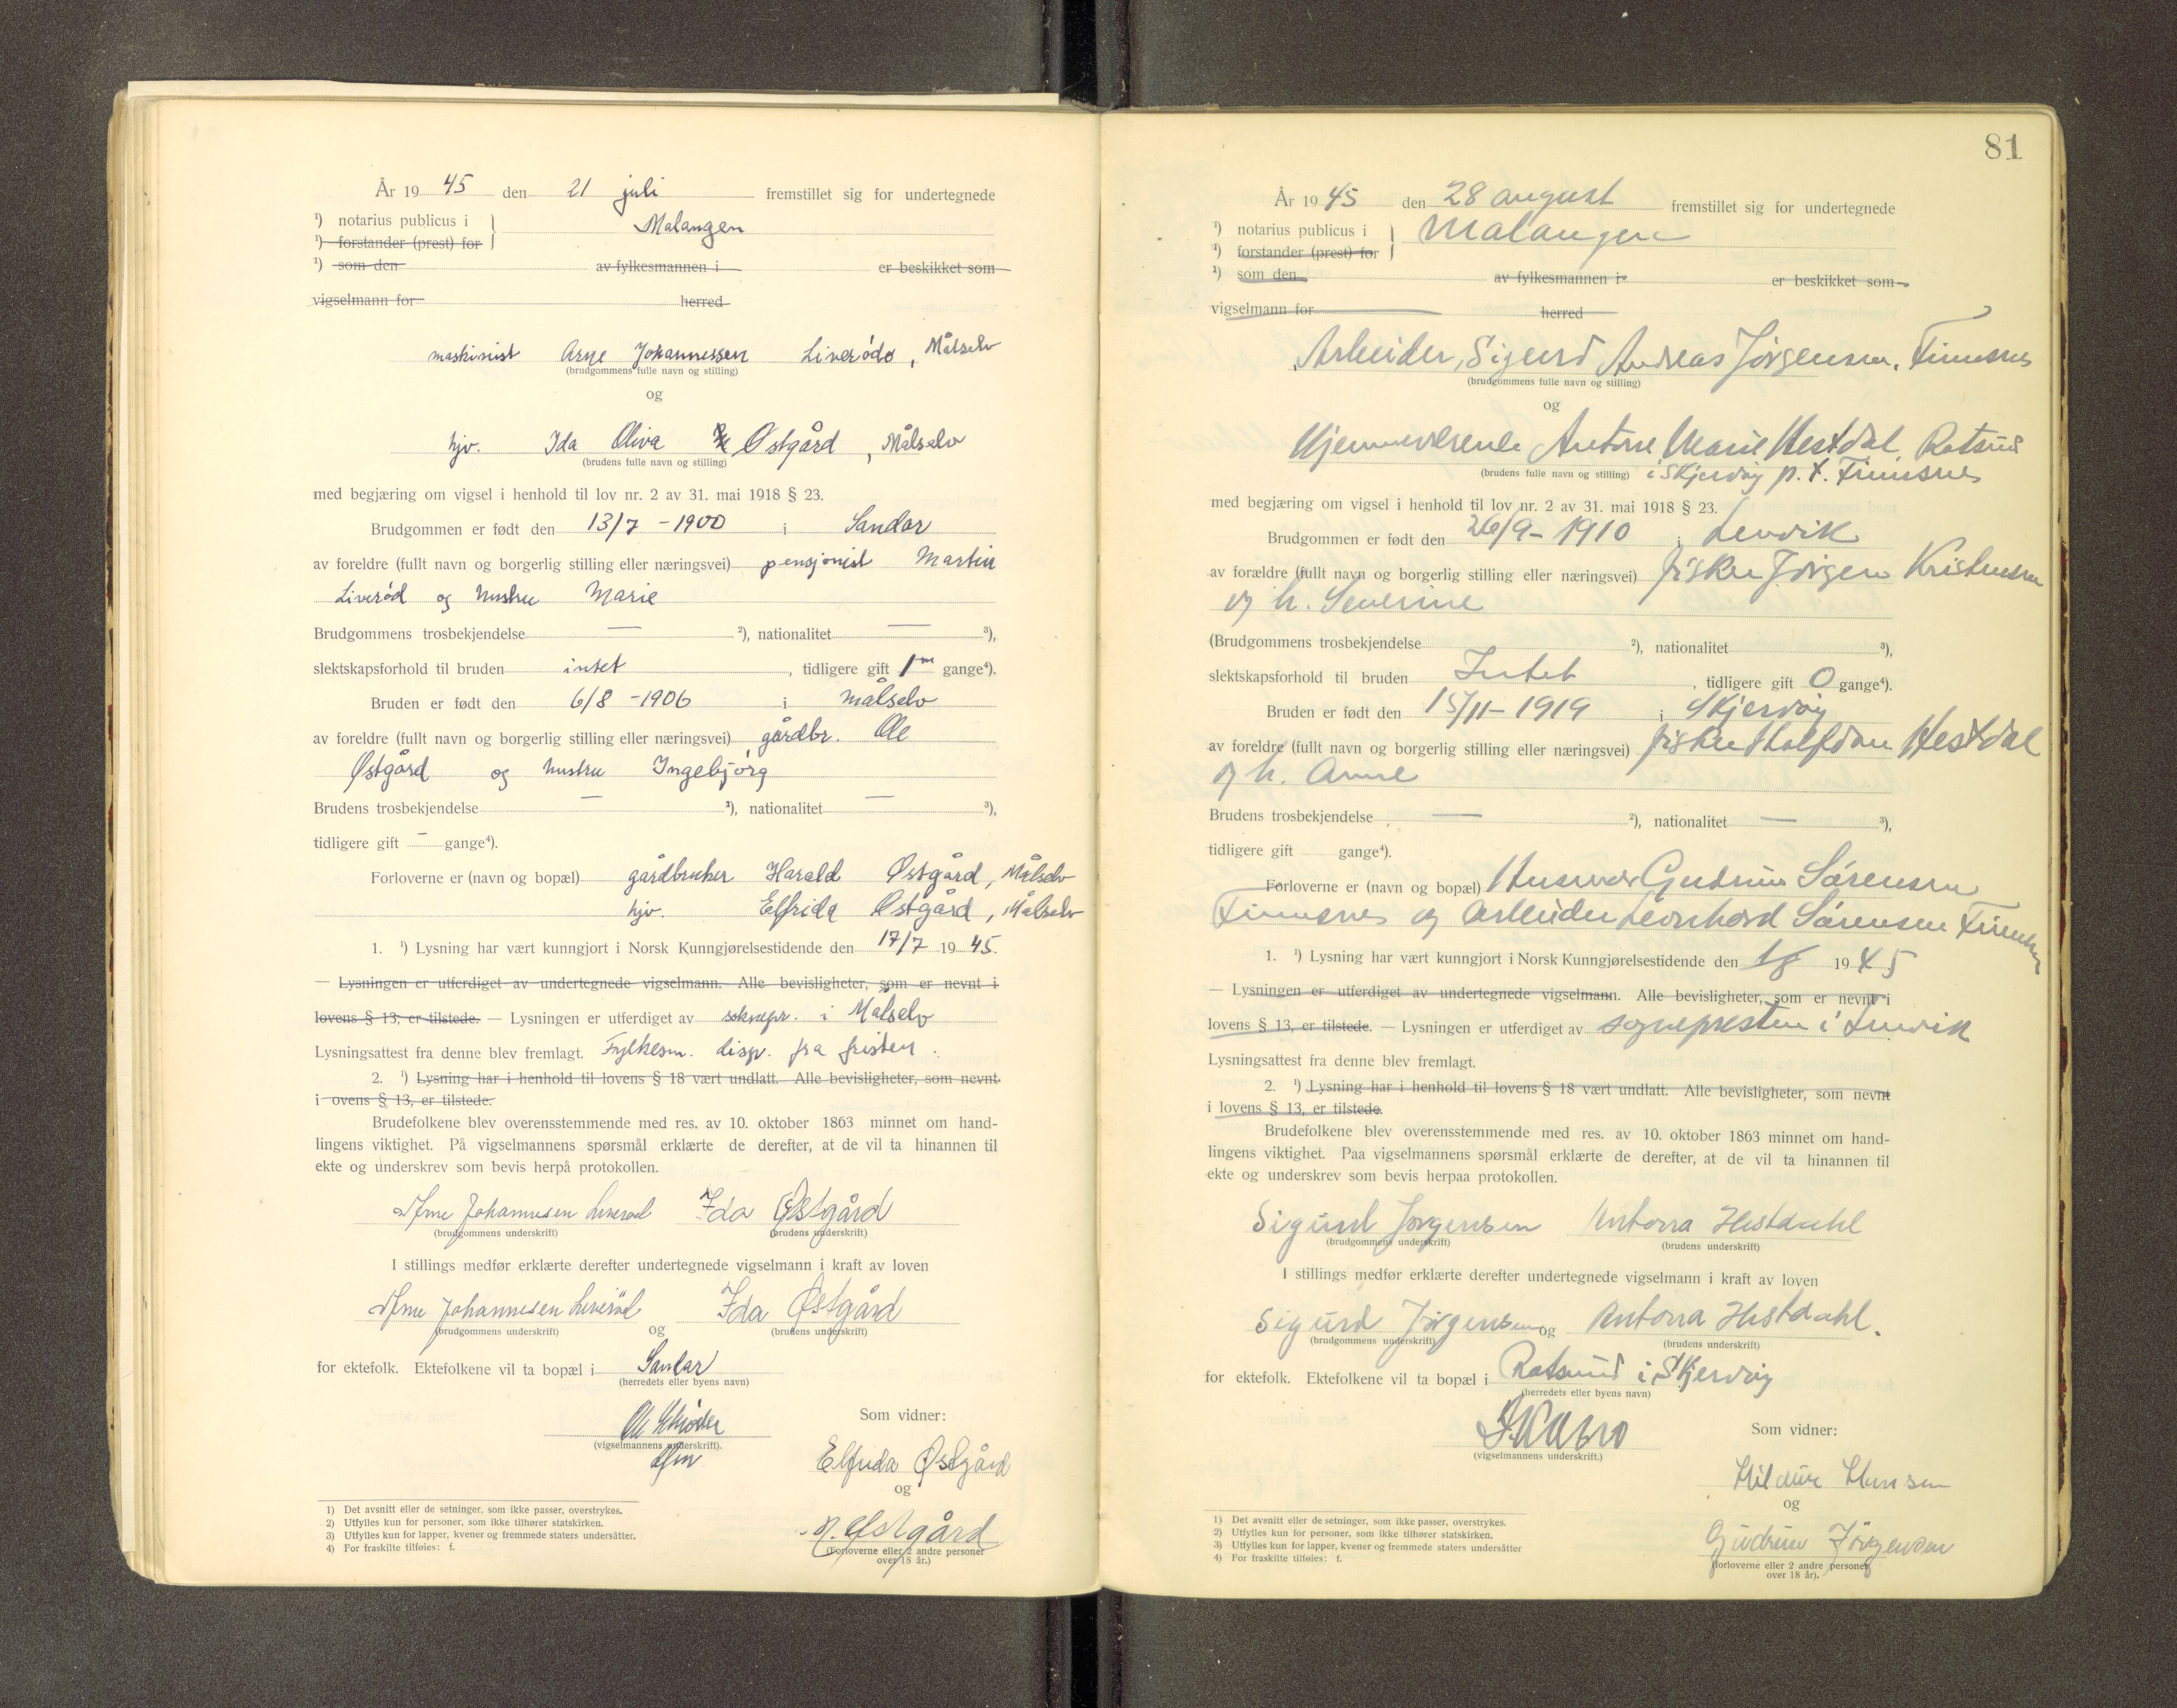 År 19 45 den 21 juli fremstillet sig for undertegnede
¹) notarius publicus i } Malangen
¹) forstander (prest) for
¹) som den av fylkesmannen i er beskikket som
vigselmann for herred
maskinist Arne Johannessen Liverød, Målselv
(brudgommens fulle navn og stilling)
og
hjv. Ida Oliva Østgård, Målselv
(brudens fulle navn og stilling)
med begjæring om vigsel i henhold til lov nr. 2 av 31. mai 1918 § 23.
Brudgommen er født den 13/7 - 1900 i Sandar
av foreldre (fullt navn og borgerlig stilling eller næringsvei) pensjonist Martin
Liverød og hustru Marie
Brudgommens trosbekjendelse — ²), nationalitet — ³),
slektskapsforhold til bruden intet, tidligere gift 1 gange⁴).
Bruden er født den 6/8 - 1906 i Målselv
av foreldre (fullt navn og borgerlig stilling eller næringsvei) gårdbr. Ole
Østgård og hustru Ingebjørg
Brudens trosbekjendelse — ²), nationalitet — ³),
tidligere gift - gange⁴).
Forloverne er (navn og bopæl) gårdbruker Harald Østgård, Målselv
hjv. Elfrida Østgård, Målselv
1. ¹) Lysning har vært kunngjort i Norsk Kunngjørelsestidende den 17/7 19 45.
— Lysningen er utferdiget av undertegnede vigselmann. Alle bevisligheter, som er nevnt i
lovens § 13, er tilstede. — Lysningen er utferdiget av soknepr. i Målselv
Lysningsattest fra denne blev fremlagt. Fylkesm. disp. fra fristen.
2. ¹) Lysning har i henhold til lovens § 18 vært undlatt. Alle bevisligheter, som nevnt
i ovens § 13, er tilstede.
Brudefolkene blev overensstemmende med res. av 10. oktober 1863 minnet om hand-
lingens viktighet. På vigselmannens spørsmål erklærte de derefter, at de vil ta hinannen til
ekte og underskrev som bevis herpå protokollen.
Arne Johannesen Liverød Ida Østgård
(brudgommens underskrift) (brudens underskrift)
I stillings medfør erklærte derefter undertegnede vigselmann i kraft av loven
Arne Johannesen Liverød og Ida Østgård
(brudgommens underskrift) (brudens underskrift)
for ektefolk. Ektefolkene vil ta bopæl i Sandar
(herredets eller byens navn)
Ole Schrøder
(vigselmannens underskrift).
Som vidner:
Elfrida Østgård
og
H. Østgård
(Forloverne eller 2 andre personer
over 18 år.)
1) Det avsnitt eller de setninger, som ikke passer, overstrykes.
2) Utfylles kun for personer, som ikke tilhører statskirken.
3) Utfylles kun for lapper, kvener og fremmede staters undersåtter.
4) For fraskilte tilføies: f.
81
År 19 45 den 28 august fremstillet sig for undertegnede
¹) notarius publicus i } Malangen
¹) forstander (prest) for
¹) som den av fylkesmannen i er beskikket som
vigselmann for herred
Arbeider, Sigurd Andreas Jørgensen, Finnsnes
(brudgommens fulle navn og stilling)
og
Hjemmeværende Antora Marie Hestdal Rotsund
(brudens fulle navn og stilling) i Skjervøy p.t. Finnsnes
med begjæring om vigsel i henhold til lov nr. 2 av 31. mai 1918 § 23.
Brudgommen er født den 26/9 - 1910 i Lenvik
av forældre (fullt navn og borgerlig stilling eller næringsvei) fisker Jørgen Kristensen
og h. Severine
(Brudgommens trosbekjendelse ²), nationalitet ³),
slektskapsforhold til bruden Intet, tidligere gift 0 gange⁴).
Bruden er født den 15/11 - 1919 i Skjervøy
av foreldre (fullt navn og borgerlig stilling eller næringsvei) fisker Halfdan Hestdal
og h. Anne
Brudens trosbekjendelse — ²), nationalitet — ³),
tidligere gift gange⁴).
Forloverne er (navn og bopæl) Husmor Gudrun Sørensen
Finnsnes og Arbeider Leonhard Sørensen Finnsnes
1. ¹) Lysning har vært kunngjort i Norsk Kunngjørelsestidende den 19 45
— Lysningen er utferdiget av undertegnede vigselmann. Alle bevisligheter, som er nevnt i
lovens § 13, er tilstede. — Lysningen er utferdiget av sognepresten i Lenvik
Lysningsattest fra denne blev fremlagt.
2. ¹) Lysning har i henhold til lovens § 18 vært undlatt. Alle bevisligheter, som nevnt
i lovens § 13, er tilstede.
Brudefolkene blev overensstemmende med res. av 10. oktober 1863 minnet om hand-
lingens viktighet. Paa vigselmannens spørsmål erklærte de derefter, at de vil ta hinannen til
ekte og underskrev som bevis herpaa protokollen.
Sigurd Jørgensen Antorra Hestdahl
(brudgommens underskrift) (brudens underskrift)
I stillings medfør erklærte derefter undertegnede vigselmann i kraft av loven
Sigurd Jørgensen og Antorra Hestdahl.
(brudgommens underskrift) (brudens underskrift)
for ektefolk. Ektefolkene vil ta bopæl i Rotsund i Skjervøy
(herredets eller byens navn)
(vigselmannens underskrift.)
Som vidner:
Hildur Hansen
og
Gudrun Jørgensen
(forloverne eller 2 andre personer
over 18 år).
1) Det avsnitt eller de setninger, som ikke passer, overstrykes.
2) Utfylles kun for personer, som ikke tilhører statskirken.
3) Utfylles kun for lapper, kvener og fremmede staters undersåtter
4) For fraskilte tilføies: f.